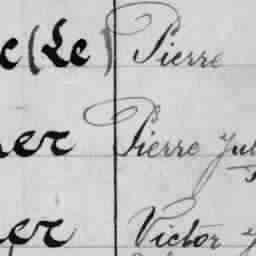 c (Le) Pierre
er Pierre Jul
er Victor J